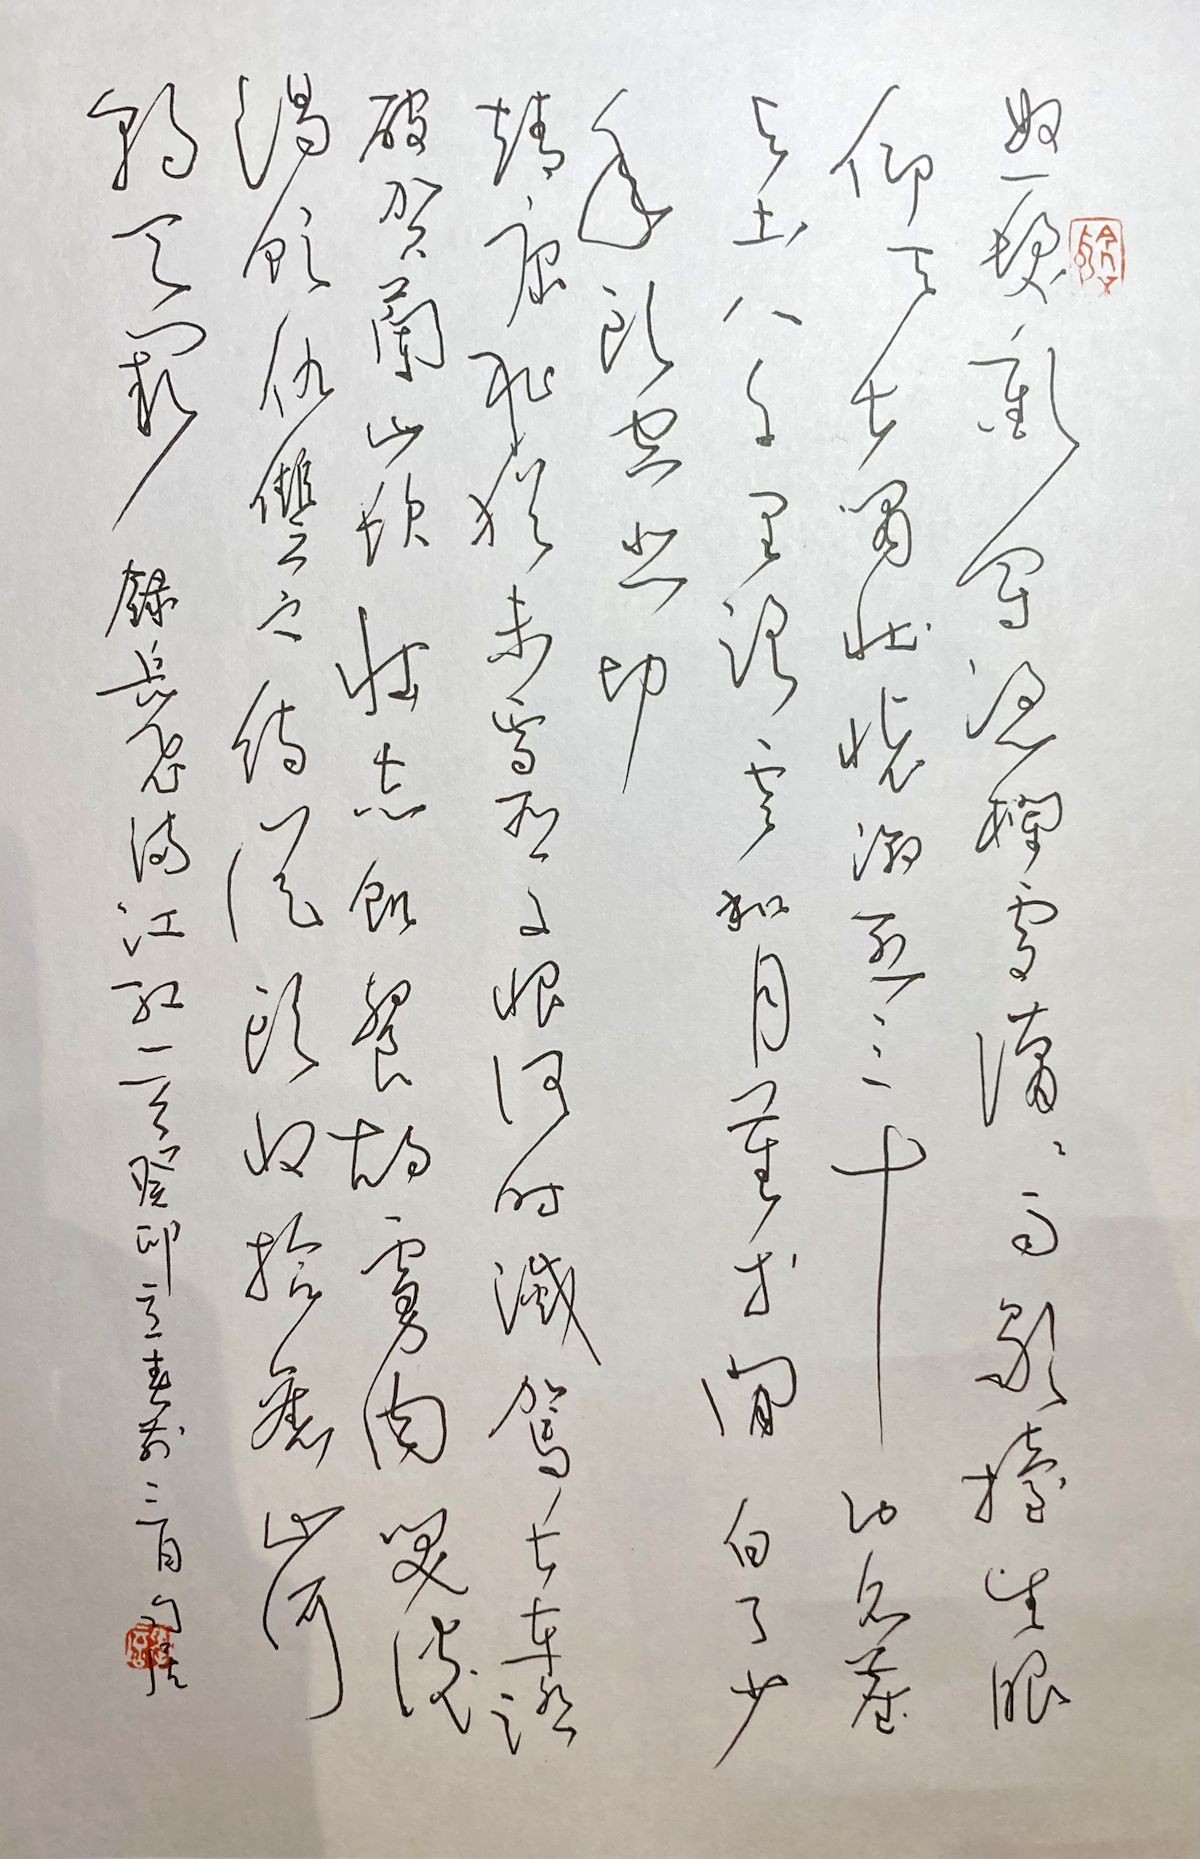 怒髮衝冠憑欄處瀟〻雨歇擡望眼
仰天長嘯壯懷激烈三十功名塵
與土八千里路雲和月莫等閒白了少
年頭空悲切
靖康恥猶未雪臣子恨何時滅駕長車踏
破賀蘭山缺壯志飢餐胡虜肉笑談
渴飲仇讐血待從頭收拾舊山河
朝天闕 錄岳飛滿江紅 癸卯立春前三日